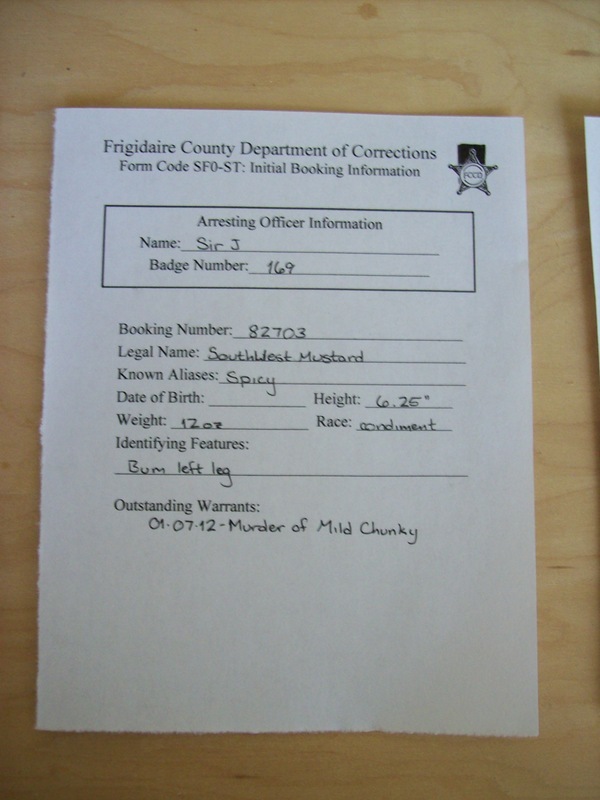 Frigidaire County Department of Corrections
Form Code SF0-ST: Initial Booking Information
FCCD
Arresting Officer Information
Name: Sir J
Badge Number: 169
Booking Number: 82703
Legal Name: SouthWest Mustard
Known Aliases: Spicy
Date of Birth: Height: 6.25"
Weight: 12oz Race: condiment
Identifying Features:
Bum left leg
Outstanding Warrants:
01-07-12-Murder of Mild Chunky